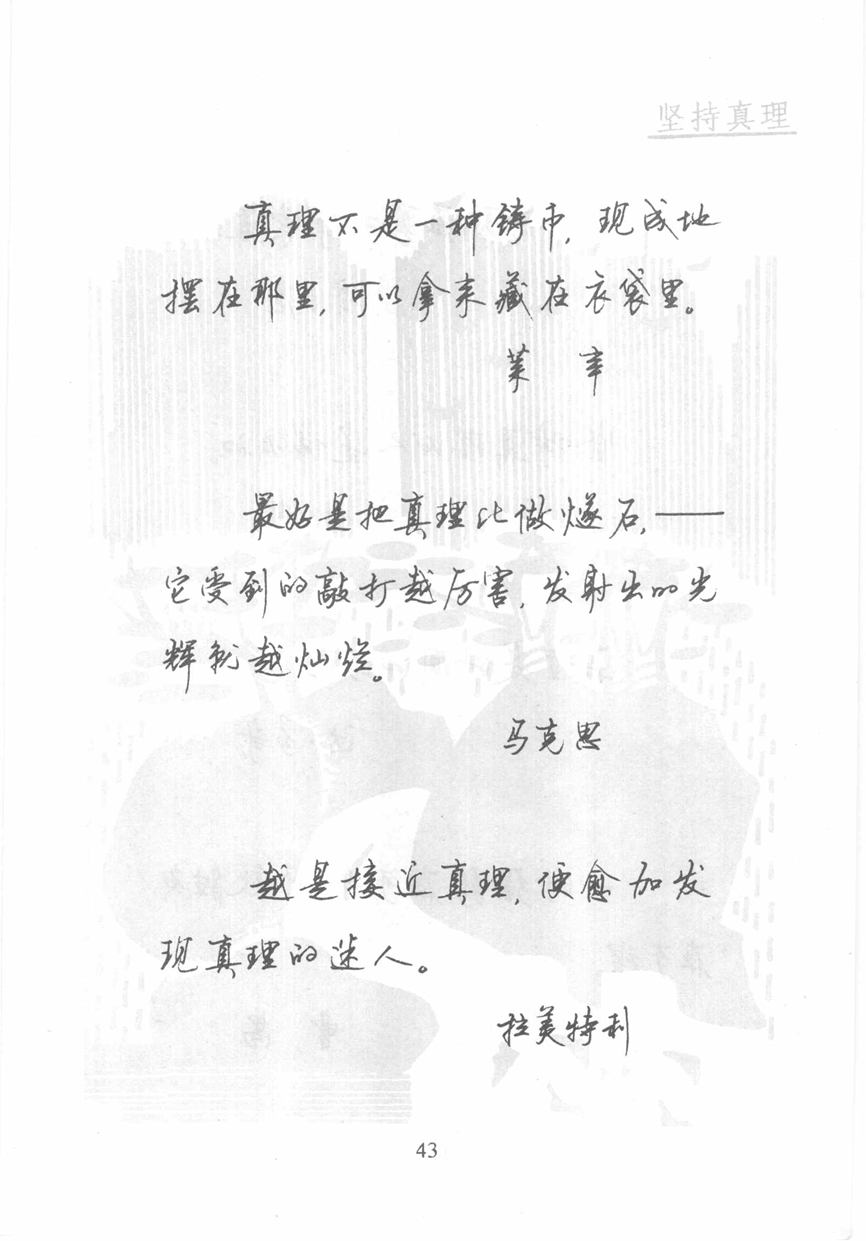 坚持真理
真理不是一种铸币，现成地
摆在那里，可以拿来藏在衣袋里。
莱 辛
最好是把真理比做燧石，——
它受到的敲打越厉害，发射出的光
辉就越灿烂。
马克思
越是接近真理，便愈加发
现真理的迷人。
拉美特利
43